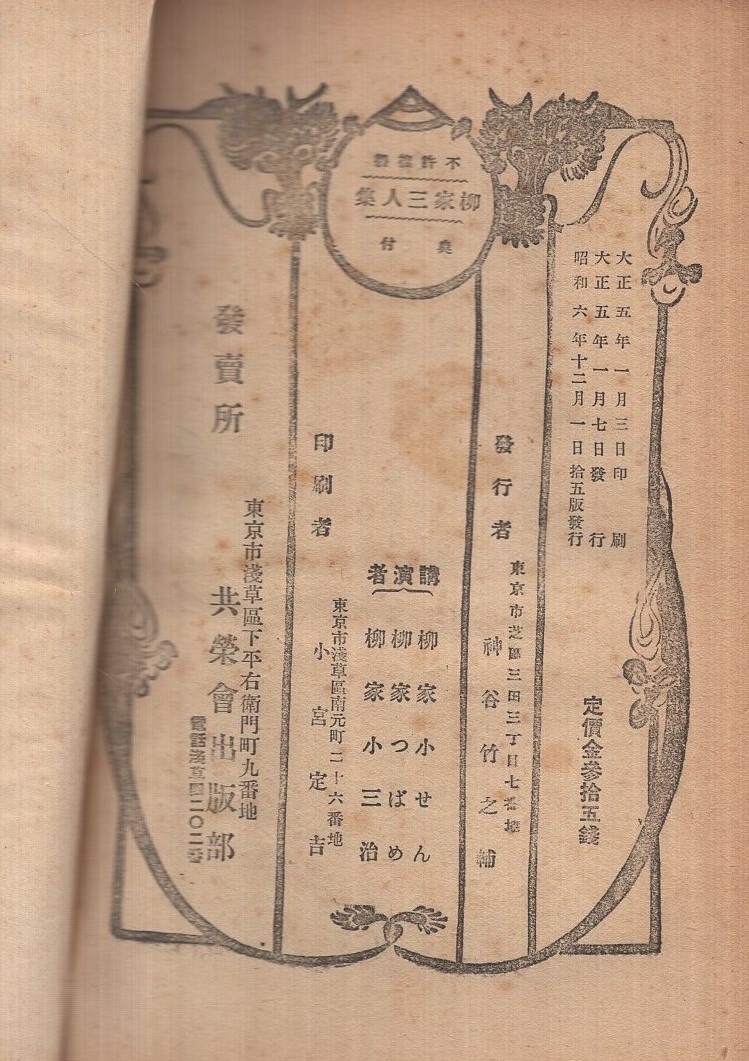 不許複製
柳家三人集
奥付
大正五年一月三日印刷
大正五年一月七日發行
昭和六年十二月一日拾五版發行
定價金參拾五錢
發行者
東京市芝區三田三丁目七番地
神谷竹之輔
講演者
柳家小せん
柳家つばめ
柳家小三治
印刷者
東京市淺草區南元町二十六番地
小宮定吉
發賣所
東京市淺草區下平右衞門町九番地
共榮會出版部
電話淺草四二〇二番